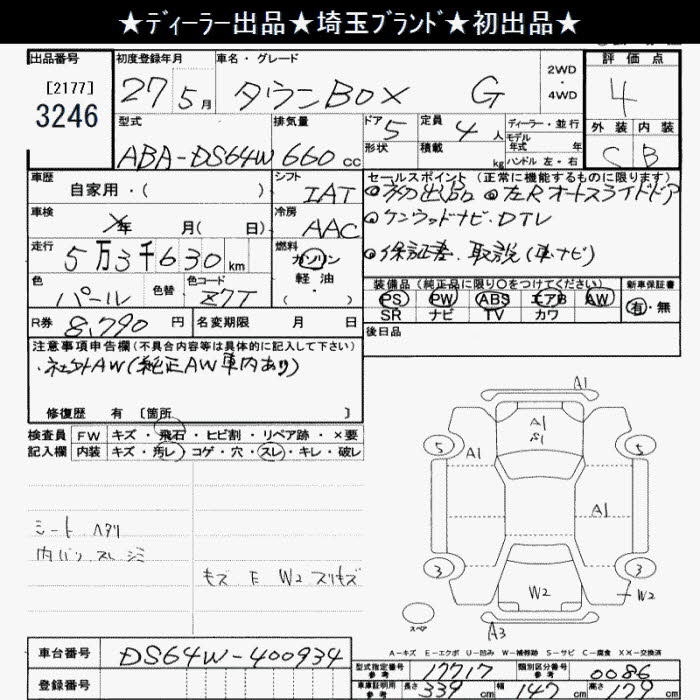 ★ディーラー出品★埼玉ブランド★初出品★
出品番号
[2177]
3246
初度登録年月
27 5月
車名・グレード
タウンBOX G
2WD
・
4WD
評価点
4
外装 内装
C B
型式
ABA-DS64W
排気量
660 cc
ドア 5
形状
定員 4 人
積載 kg
ディーラー・並行
モデル年式 年
ハンドル 左・右
車歴
自家用・( )
シフト
IAT
セールスポイント (正常に機能するものに限ります)
◎初出品 ◎左Rオートスライドドア
◎ケンウッドナビ・DTV
◎保証書・取説(車・ナビ)
車検
年 月( 日)
冷房
AAC
走行
5万3千630km
燃料
ガソリン
軽油
( ・ )
色
パール
色替
色コード
Z7T
装備品 (純正品に限り〇をつけてください)
PS PW ABS エアB AW
SR ナビ TV カワ
新車保証書
有・無
R券 8,790 円
名変期限 月 日
後日品
注意事項申告欄(不具合内容等は具体的に記入して下さい)
・社外AW(純正AW車内あり)
修復歴 有 [箇所 ]
検査員 FW キズ・飛石・ヒビ割・リペア跡・×要
記入欄 内装 キズ・汚レ・コゲ・穴・スレ・キレ・破レ
シート ヘタリ
内バリ スレ シミ
キズ E W2 スリキズ
A1
A1
S1
5
A1
5
A1
3
3
W2
W2
スペア
A3
A-キズ E-エクボ U-凹み W-補修跡 S-サビ C-腐食 X X-交換済
車台番号 DS64W-400934
登録番号
型式指定番号 参考 17717
類別区分番号 参考 0086
車庫証明用 参考 長さ 339 cm 幅 147 cm 高さ 179 cm